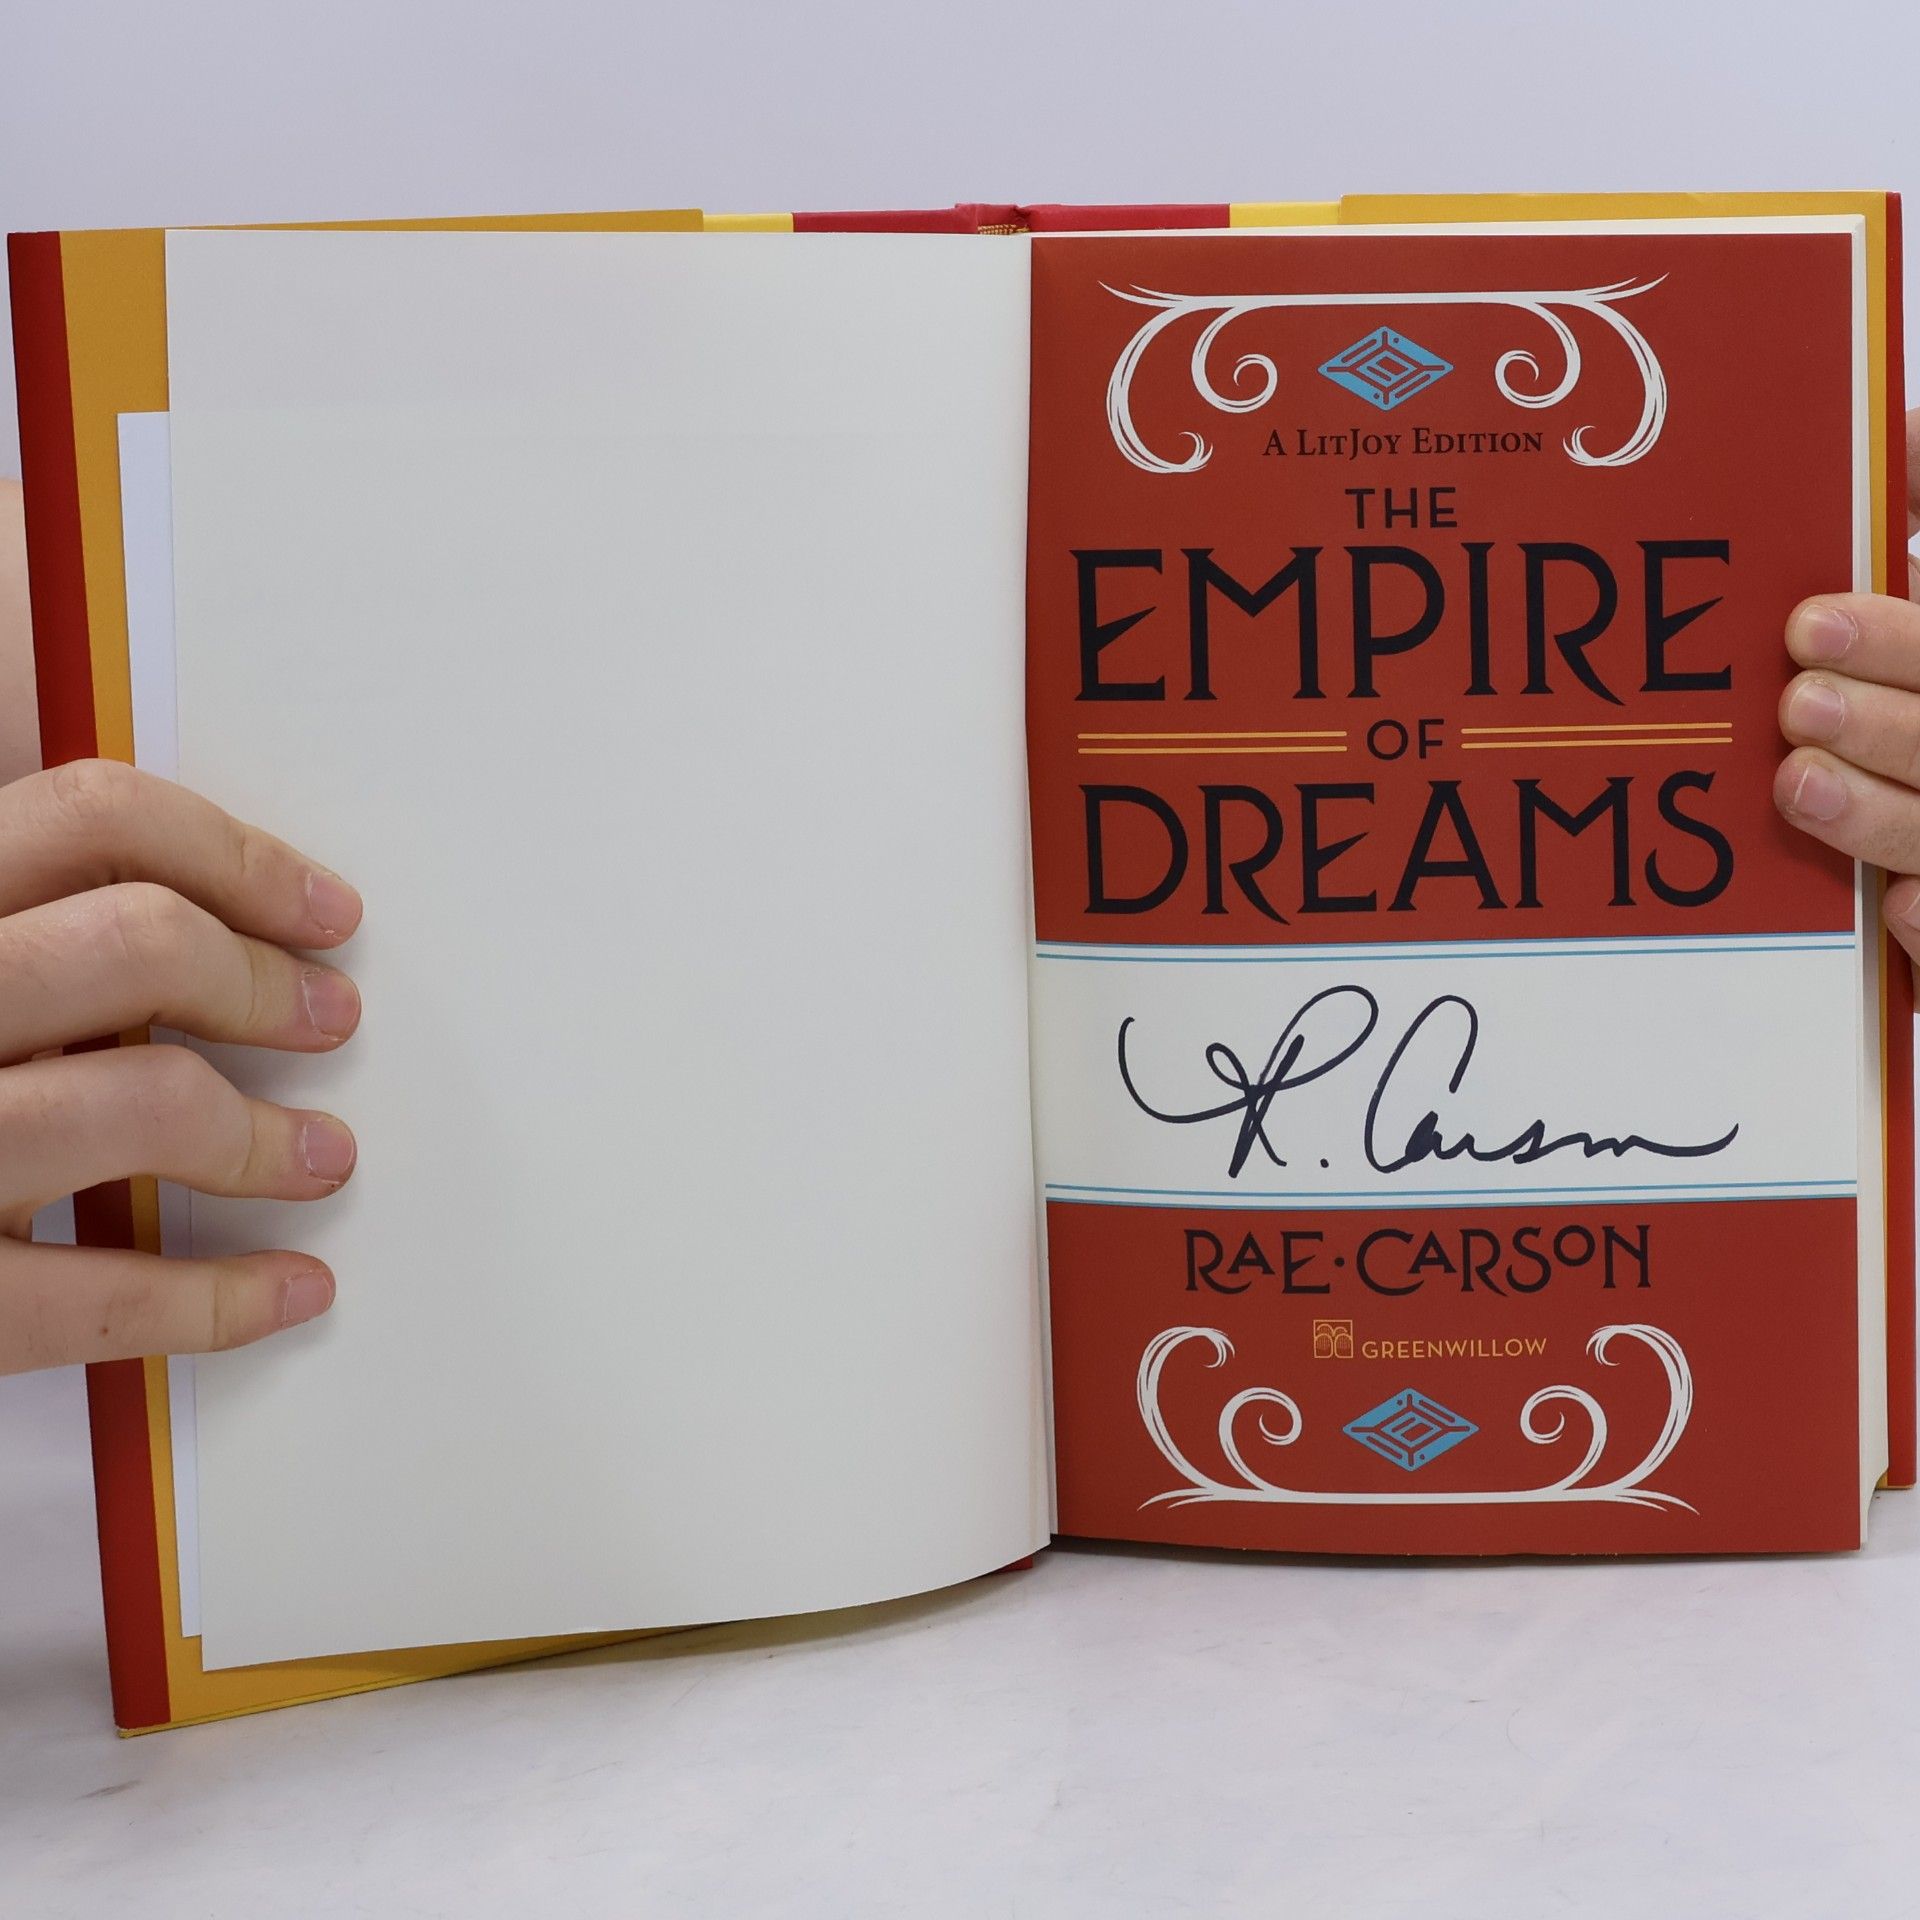 A LITJOY EDITION
THE
EMPIRE
OF
DREAMS
R. Carson
RAE · CARSON
GREENWILLOW